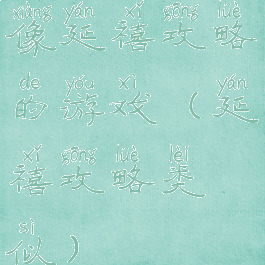 xiàng yán xǐ gōng lüè
像延禧攻略
de yóu xì yán
的游戏（延
xǐ gōng lüè lèi
禧攻略类
sì
似）